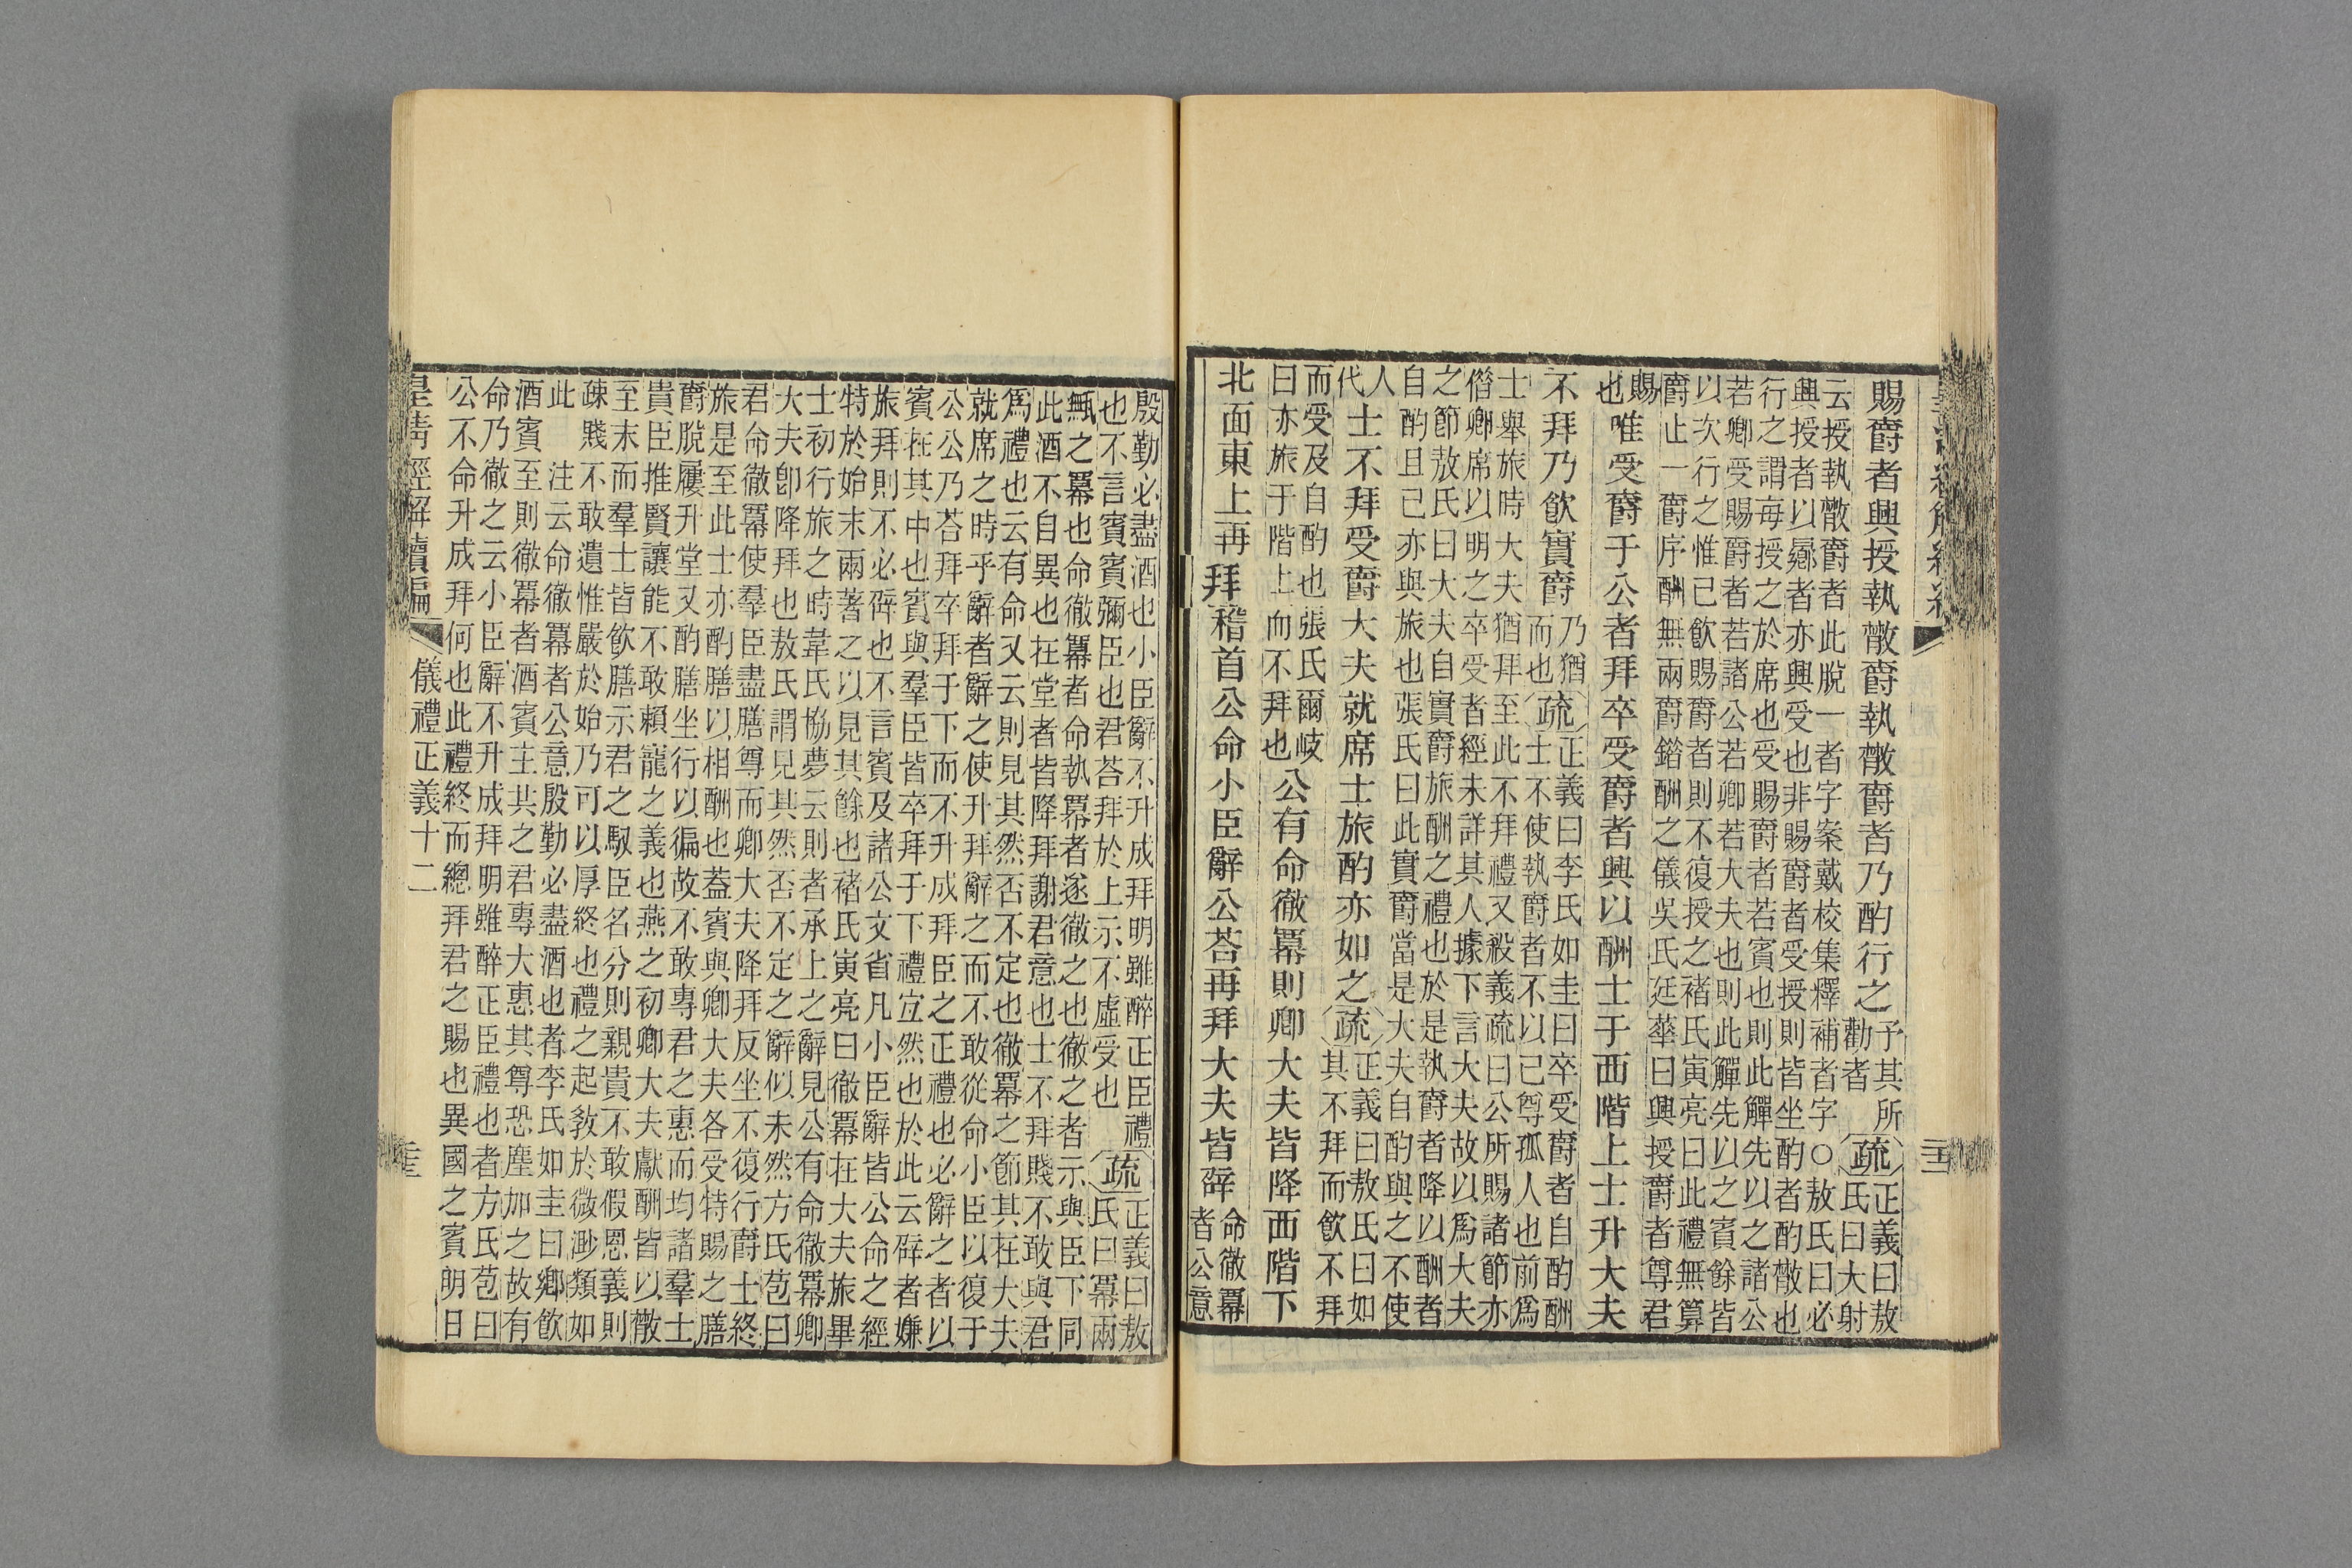 賜爵者興授執散爵執散爵者乃酌行之予其所
勸者疏正義曰敖
氏曰大射
云授執散爵者此脫一者字案戴校集釋補者字○敖氏曰必
興授者以鄉者亦興受也非賜爵者受授則皆坐酌者酌散也
行之謂每授之於席也受賜爵者若賓也則此觶先以之諸公
若卿受賜爵者若諸公若卿若大夫也則此觶先以之賓餘皆
以次行之惟已飲賜爵者則不復授之褚氏寅亮曰此禮無算
爵止一爵序酬無兩爵錯酬之儀吳氏廷華曰興授爵者尊君
賜
也唯受爵于公者拜卒受爵者興以酬士于西階上士升大夫
不拜乃飲實爵乃猶
而也疏正義曰李氏如圭曰卒受爵者自酌酬
士不使執爵者不以己尊孤人也前爲
士舉旅時大夫猶拜至此不拜禮又殺義疏曰公所賜諸節亦
僭卿席以明之卒受者經未詳其人據下言大夫故以爲大夫
之節敖氏曰大夫自實爵旅酬之禮也於是執爵者降以酬者
自酌且己亦與旅也張氏曰此實爵當是大夫自酌與之不使
人
代士不拜受爵大夫就席士旅酌亦如之疏正義曰敖氏曰如
其不拜而飲不拜
而受及自酌也張氏爾岐
曰亦旅于階上而不拜也公有命徹冪則卿大夫皆降西階下
北面東上再拜稽首公命小臣辭公荅再拜大夫皆辟命徹冪
者公意
殷勤必盡酒也小臣辭不升成拜明雖醉正臣禮疏正義曰敖
也不言賓賓彌臣也君荅拜於上示不虛受也氏曰冪兩
甒之冪也命徹冪者命執冪者遂徹之也徹之者示與臣下同
此酒不自異也在堂者皆降拜謝君意也士不拜賤不敢與君
爲禮也云有命又云則見其然否不定也徹冪之節其在大夫
就席之時乎辭者辭之使升拜辭之而不敢從命小臣以復于
公公乃荅拜卒拜于下而不升成拜臣之正禮也必辭之者以
賓在其中也賓與羣臣皆卒拜于下禮宜然也於此云辟者嫌
旅拜則不必辟也不言賓及諸公文省凡小臣辭皆公命之經
特於始末兩著之以見其餘也褚氏寅亮曰徹冪在大夫旅畢
士初行旅之時韋氏協夢云則者承上之辭見公有命徹冪卿
大夫卽降拜也敖氏謂見其然否不定之辭似未然方氏苞曰
君命徹冪使羣臣盡膳尊而卿大夫降拜反坐不復行爵士終
旅是至此士亦酌膳以相酬也葢賓與卿大夫各受特賜之膳
爵脫屨升堂又酌膳坐行以徧故不敢專君之惠而均諸羣士
貴臣推賢讓能不敢賴寵之義也燕之初卿大夫獻酬皆以散
至末而羣士皆飲膳示君之馭臣名分則親貴不敢假恩義則
疎賤不敢遺惟嚴於始乃可以厚終也禮之起敎於微渺類如
此　注云命徹冪者公意殷勤必盡酒也者李氏如圭曰鄉飲
酒賓至則徹冪者酒賓主共之君專大惠其尊恐塵加之故有
命乃徹之云小臣辭不升成拜明雖醉正臣禮也者方氏苞曰
公不命升成拜何也此禮終而總拜君之賜也異國之賓明日
皇淸經解續編　儀禮正義十二